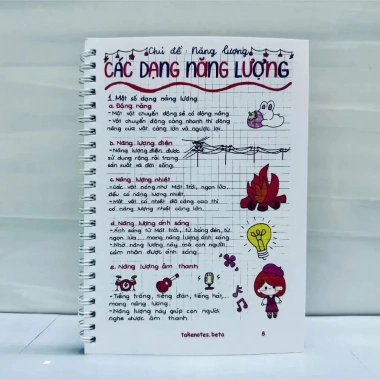 Chủ đề: Năng lượng
CÁC DẠNG NĂNG LƯỢNG
1. Một số dạng năng lượng
a. Động năng
- Một vật chuyển động sẽ có động năng
- Vật chuyển động càng nhanh thì động
năng của vật càng lớn và ngược lại.
b. Năng lượng điện
- Năng lượng điện được
sử dụng rộng rãi trong
sản xuất và đời sống.
c. Năng lượng nhiệt
- Các vật nóng như Mặt trời, ngọn lửa...
đều có năng lượng nhiệt.
- Một vật có nhiệt độ càng cao thì
có năng lượng nhiệt càng lớn.
d. Năng lượng ánh sáng
- Ánh sáng từ Mặt trời, từ bóng đèn, từ
ngọn lửa... mang năng lượng ánh sáng
- Nhờ năng lượng này mà con người
cảm nhận được ánh sáng.
e. Năng lượng âm thanh
- Tiếng trống, tiếng đàn, tiếng hát,...
mang năng lượng.
- Năng lượng này giúp con người
nghe được âm thanh.
takenotes.beta
8